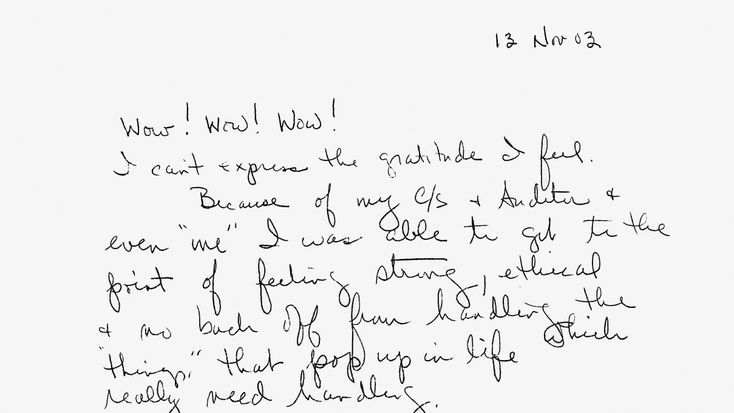 13 Nov 03
Wow! Wow! Wow!
I can't express the gratitude I feel.
Because of my C/S + Auditor +
even "me" I was able to get to the
point of feeling strong, ethical
+ no back off from handling the
"things" that pop up in life which
really need handling.